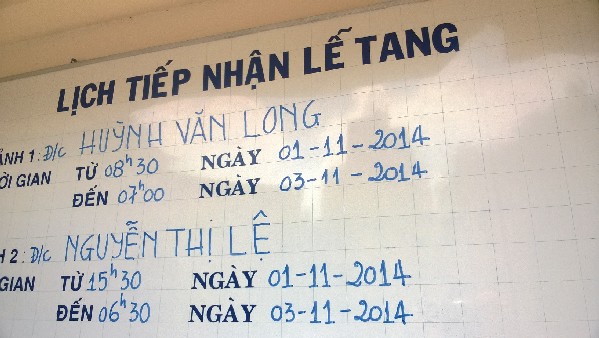 LỊCH TIẾP NHẬN LỄ TANG
ẢNH 1: Đ/c HUỲNH VĂN LONG
ỜI GIAN TỪ 08h30 NGÀY 01-11-2014
ĐẾN 07h00 NGÀY 03-11-2014
H 2: Đ/c NGUYỄN THỊ LỆ
GIAN TỪ 15h30 NGÀY 01-11-2014
ĐẾN 06h30 NGÀY 03-11-2014